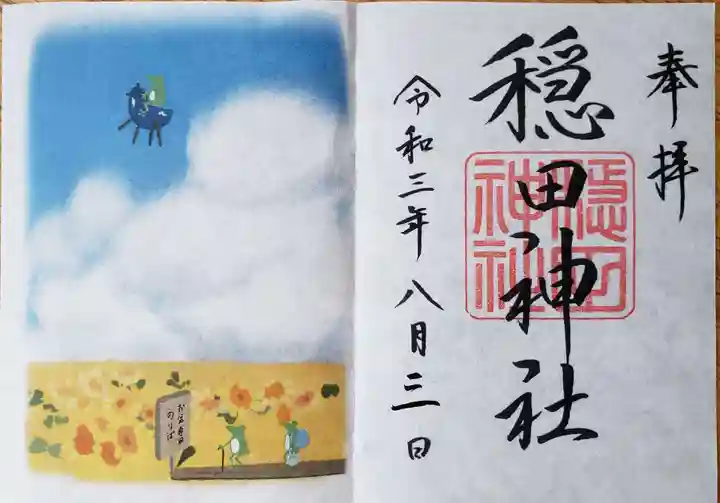 奉拝
穏田神社
穏田
神社
令和三年八月三日
お盆専用
のりば